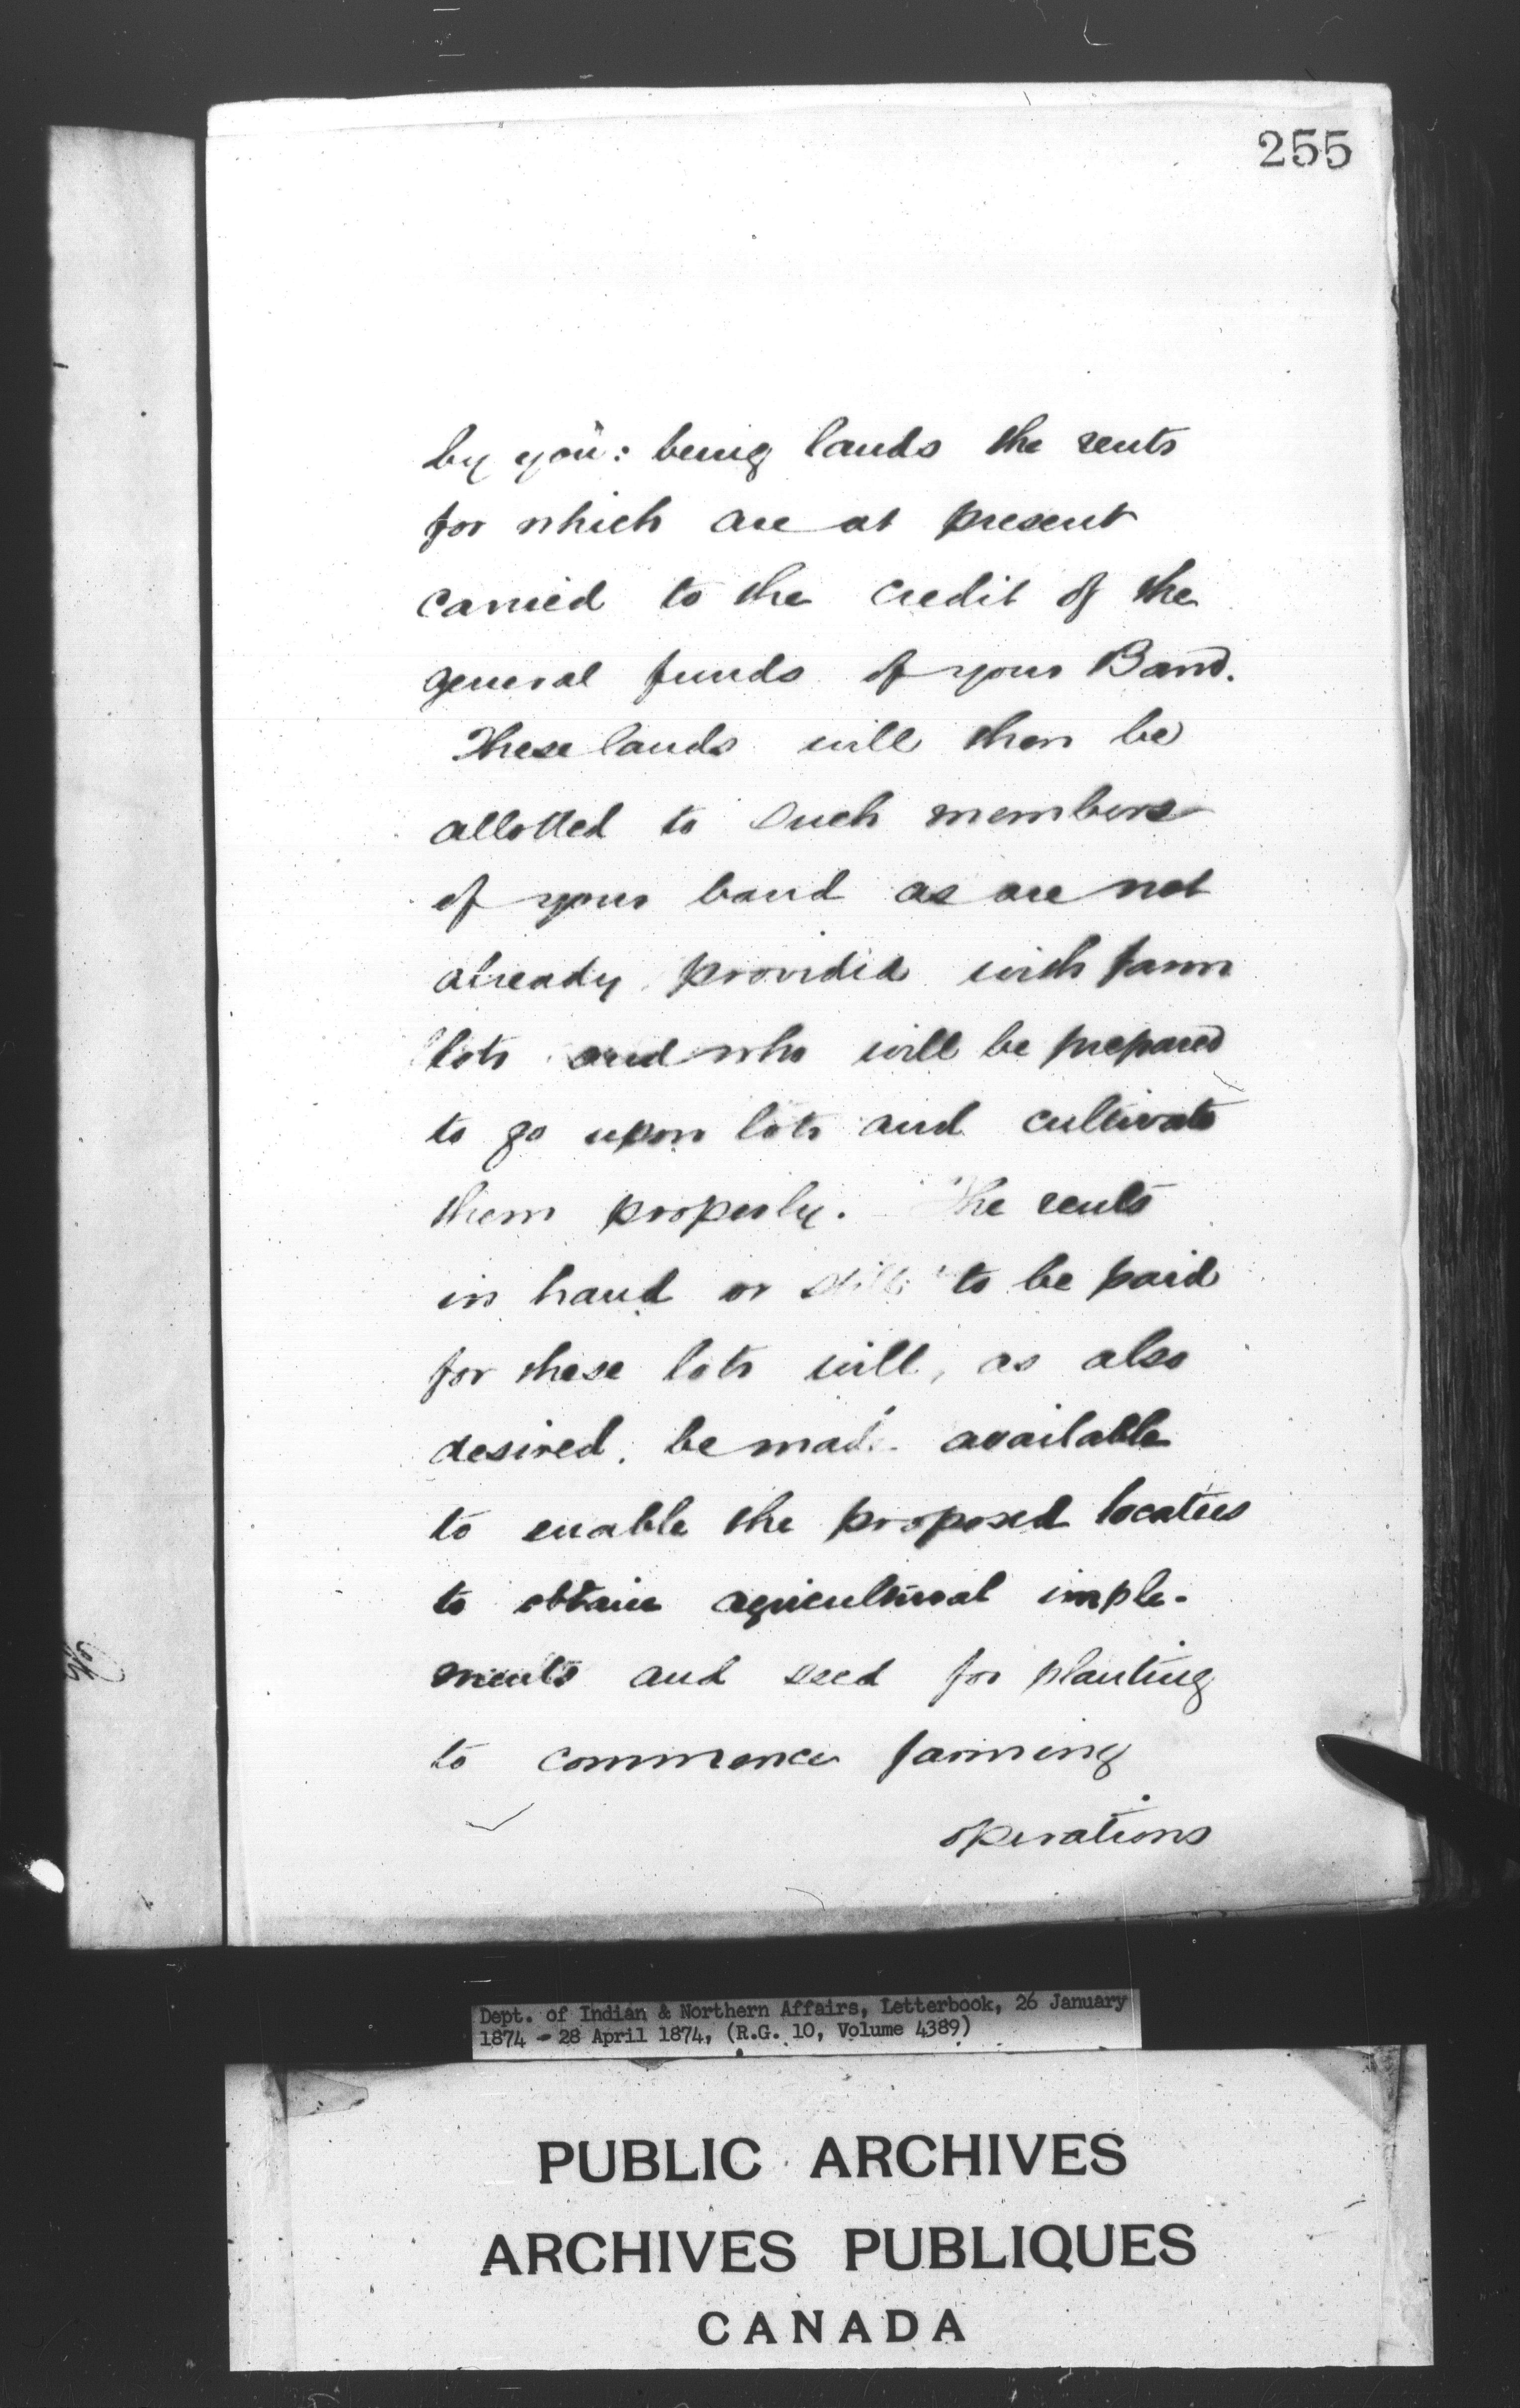 255
by you: being lands the rents
for which are at present
carried to the credit of the
general funds of your Band.
These lands will then be
allotted to such members
of your band as are not
already provided with farm
lots and who will be prepared
to go upon lots and cultivate
them properly. The rents
in hand or still to be paid
for these lots will, as also
desired, be made available
to enable the proposed locatees
to obtain agricultural imple-
ments and seed for planting
to commence farming
operations
Dept. of Indian & Northern Affairs, Letterbook, 26 January
1874 - 28 April 1874, (R.G. 10, Volume 4389)
PUBLIC ARCHIVES
ARCHIVES PUBLIQUES
CANADA